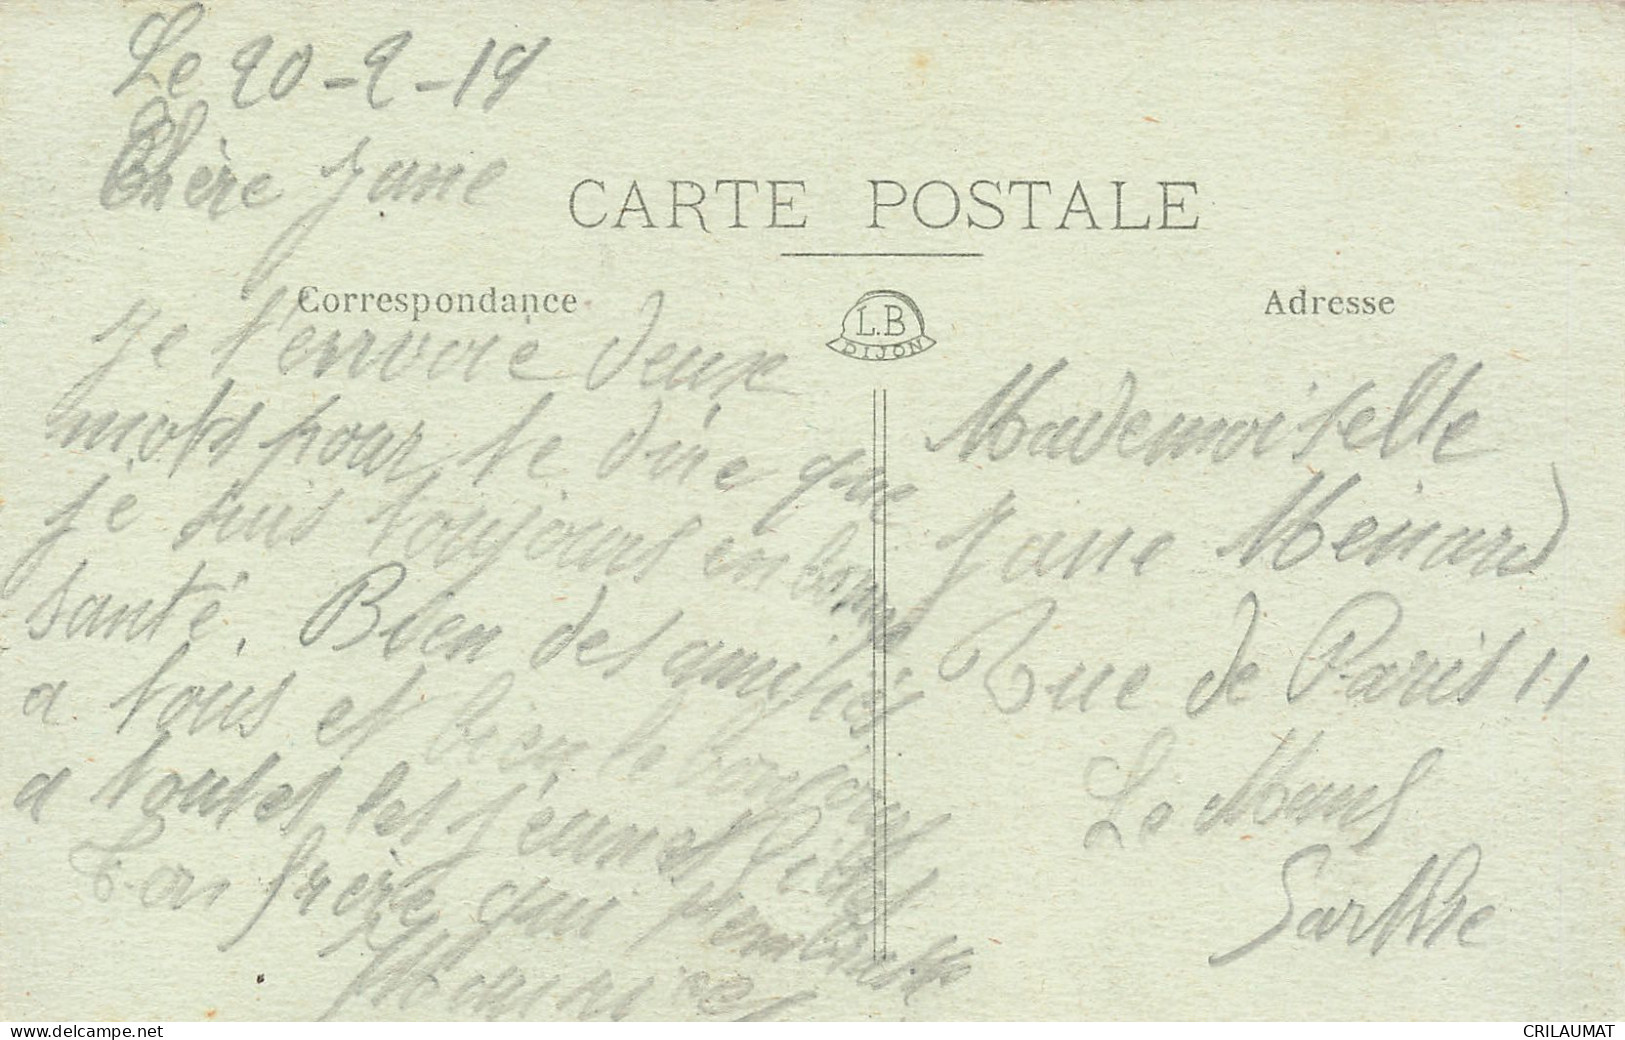 Le 20-2-19
Chère Jane
CARTE POSTALE
Correspondance
L.B
DIJON
Adresse
Je t'envoie deux
mots pour te dire que
je suis toujours en bonne
santé. Bien des amitiés
a tous et bien le bonjour
a toutes les jeunes filles
Ton frère qui
Maurice
Mademoiselle
Jane Ménard
Rue de Paris 11
Le Mans
Sarthe
www.delcampe.net
CRILAUMAT